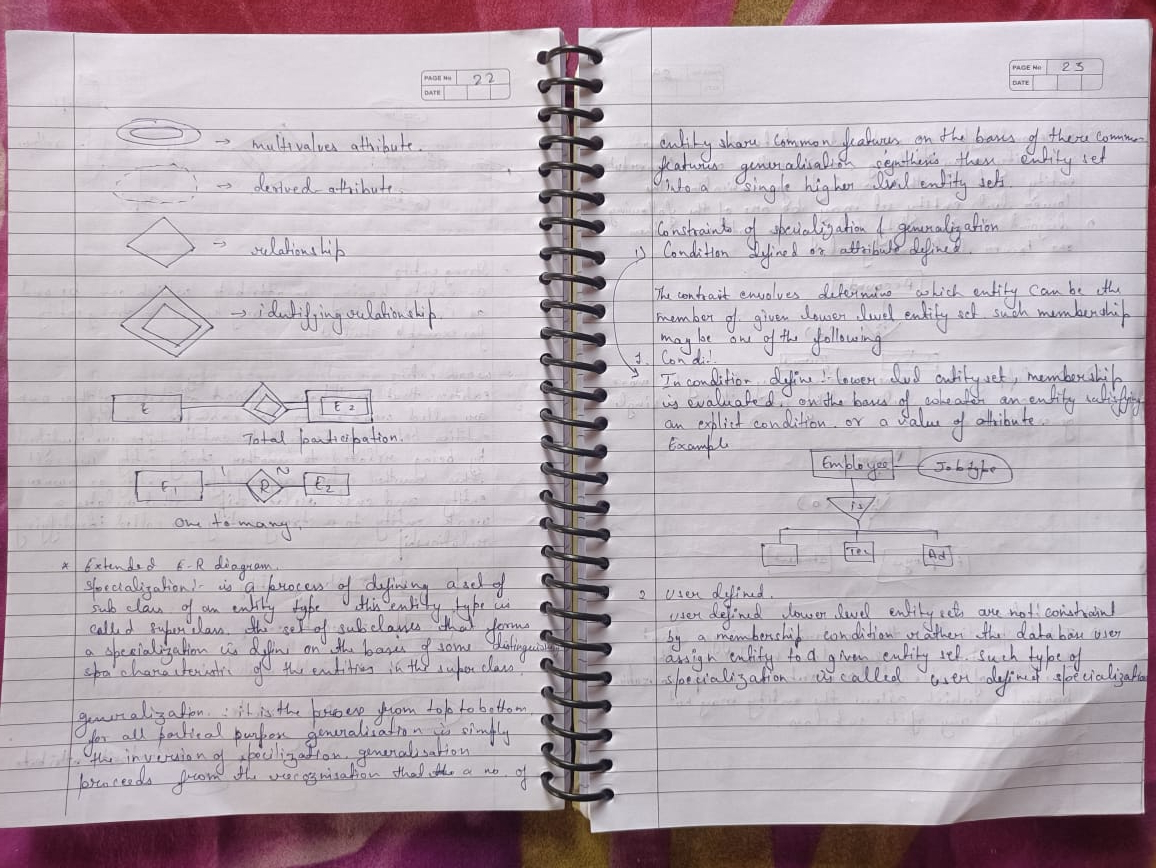 PAGE No 22
DATE
→ multivalues attribute.
→ derived attribute.
→ relationship
→ identifying relationship.
E
E2
Total participation.
E1
1
R
N
E2
One to many.
* Extended E-R diagram.
Specialization:- is a process of defining a set of
sub class of an entity type this entity type is
called super class. the set of subclasses that forms
a specialization is define on the bases of some distinguish
spa characteristic of the entities in the super class.
generalization : it is the process from top to bottom
for all partical purpose generalisation is simply
the inversion of specilization. generalisation
proceeds from the recognisation that the a no. of
PAGE No 23
DATE
entity share common features on the bases of there common
features generalisation synthesis these entity set
into a single higher level entity sets.
Constraints of specialization & generalization
1) Condition defined or attribute defined.
The contrait envolves determine which entity can be the
member of given lower level entity set such membership
may be one of the following
1. Condi:
In condition define :- lower level entity set, membership
is evaluated on the bases of wheater an entity satisfying
an explict condition or a value of attribute.
Example
Employee
Job type
is
Tec
Ad
2 User defined.
user defined lower level entity sets are not constraint
by a membership condition rather the data base user
assign entity to a given entity set. Such type of
specialization is called user defined specialization